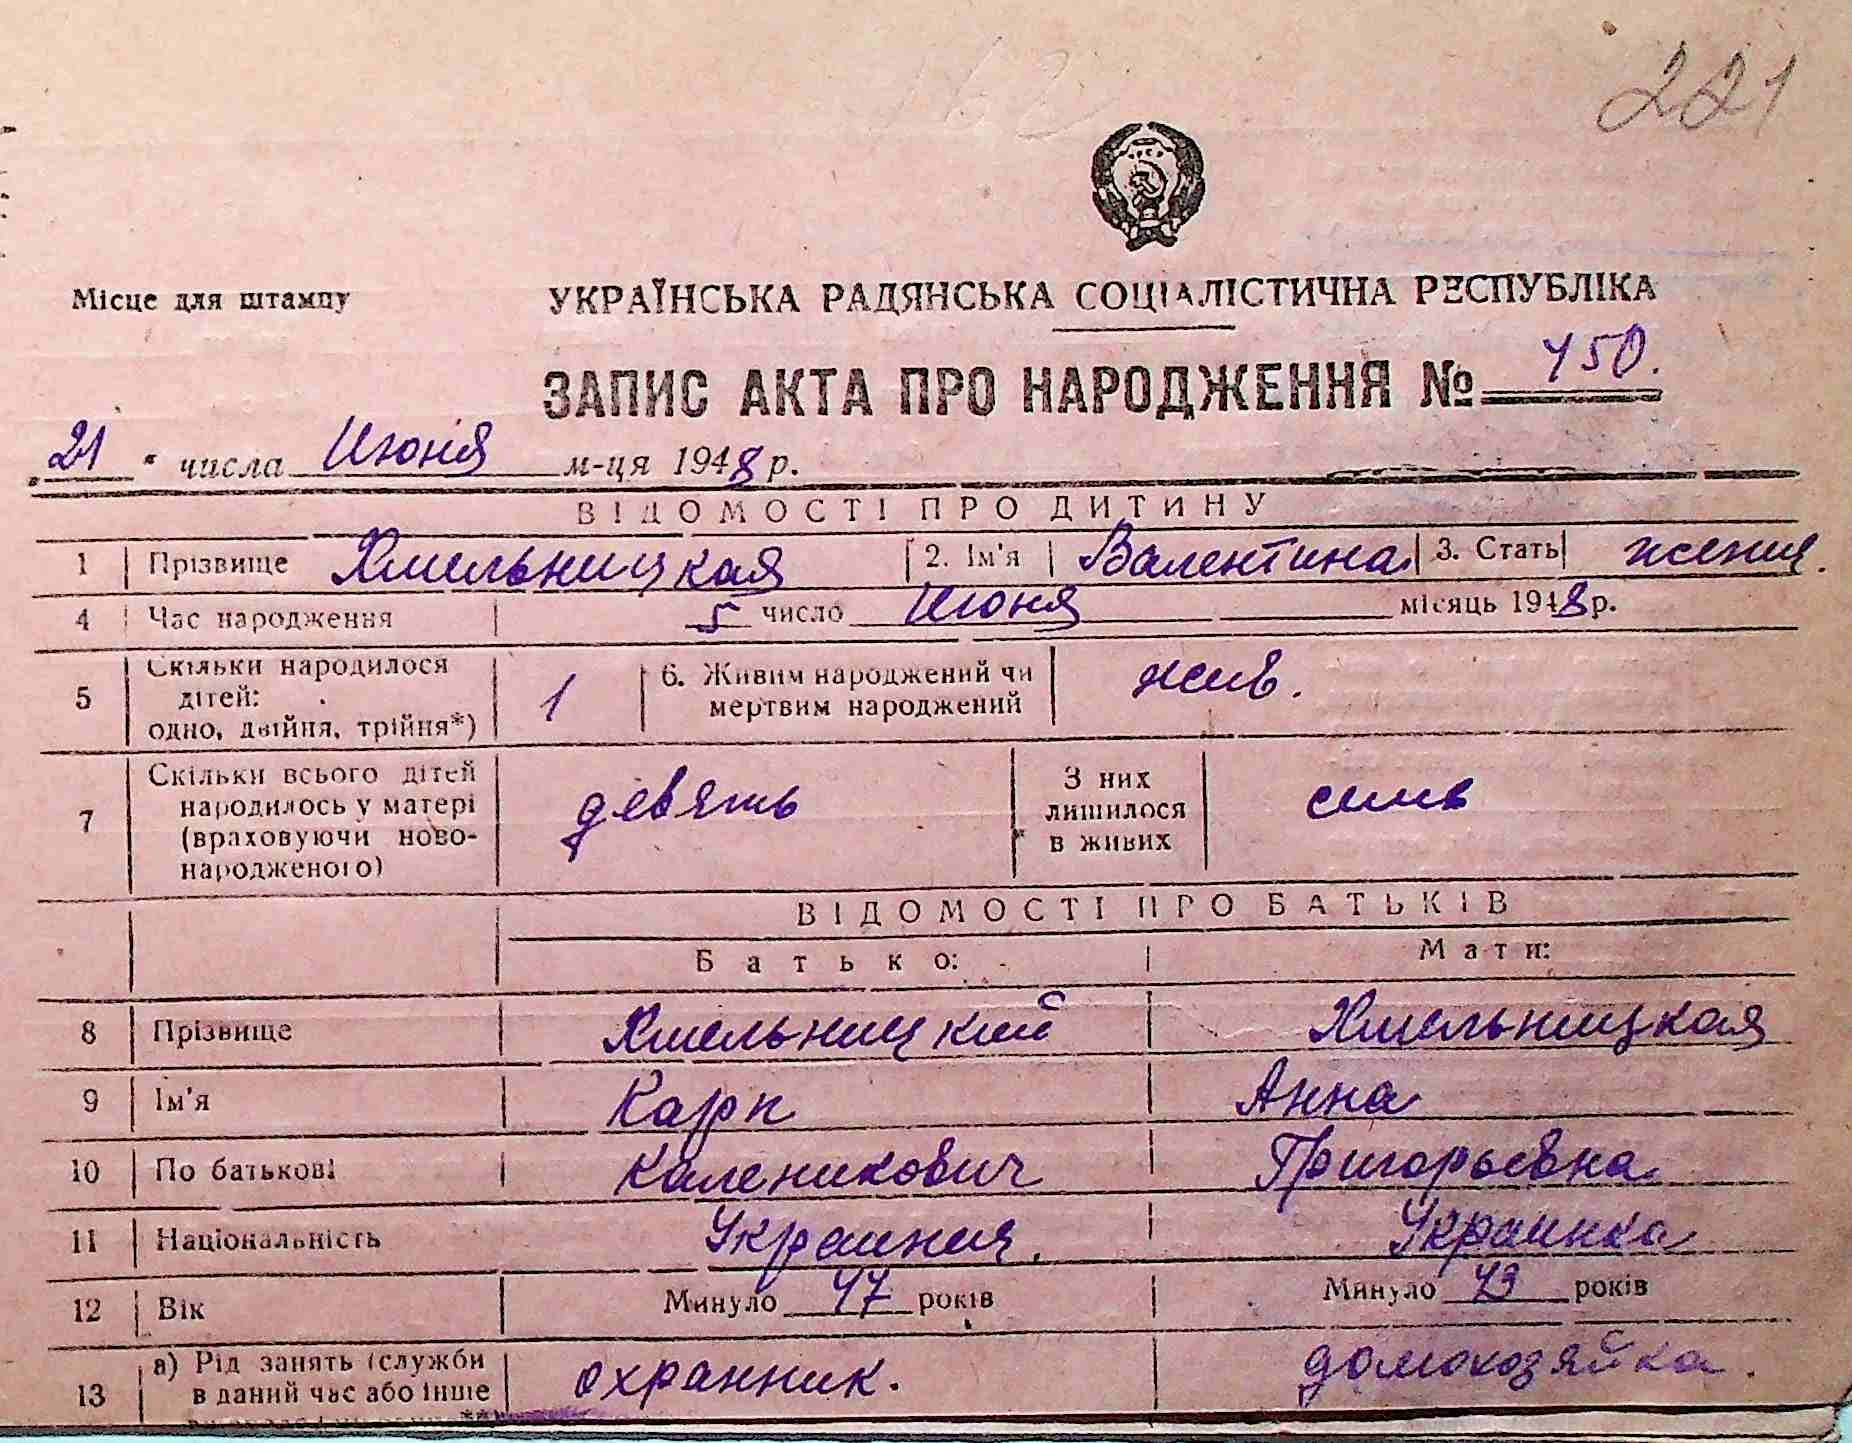 221
Місце для штампу
УКРАЇНСЬКА РАДЯНСЬКА СОЦІАЛІСТИЧНА РЕСПУБЛІКА
ЗАПИС АКТА ПРО НАРОДЖЕННЯ № 450.
„21 “ числа Июня м-ця 1948 р.
ВІДОМОСТІ ПРО ДИТИНУ
1 Прізвище Хмельницкая 2. Ім'я Валентина 3. Стать женщ.
4 Час народження 5 число Июня місяць 1948 р.
5 Скільки народилося дітей: одно, двійня, трійня*) 1 6. Живим народжений чи мертвим народжений жив.
7 Скільки всього дітей народилось у матері (враховуючи ново-народженого) девять З них лишилося в живих семь
ВІДОМОСТІ ПРО БАТЬКІВ
Батько: Мати:
8 Прізвище Хмельницкий Хмельницкая
9 Ім'я Карп Анна
10 По батькові Каленикович Григорьевна
11 Національність Украинец. Украинка
12 Вік Минуло 47 років Минуло 43 років
13 а) Рід занять (служби в даний час або інше охранник. домохозяйка.